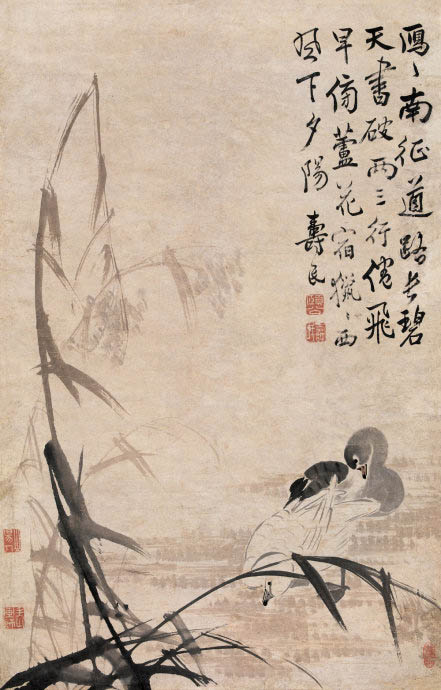 鴈〻南征道路長碧
天書破兩三行倦飛
早傍蘆花宿獵〻西
風下夕陽 壽民